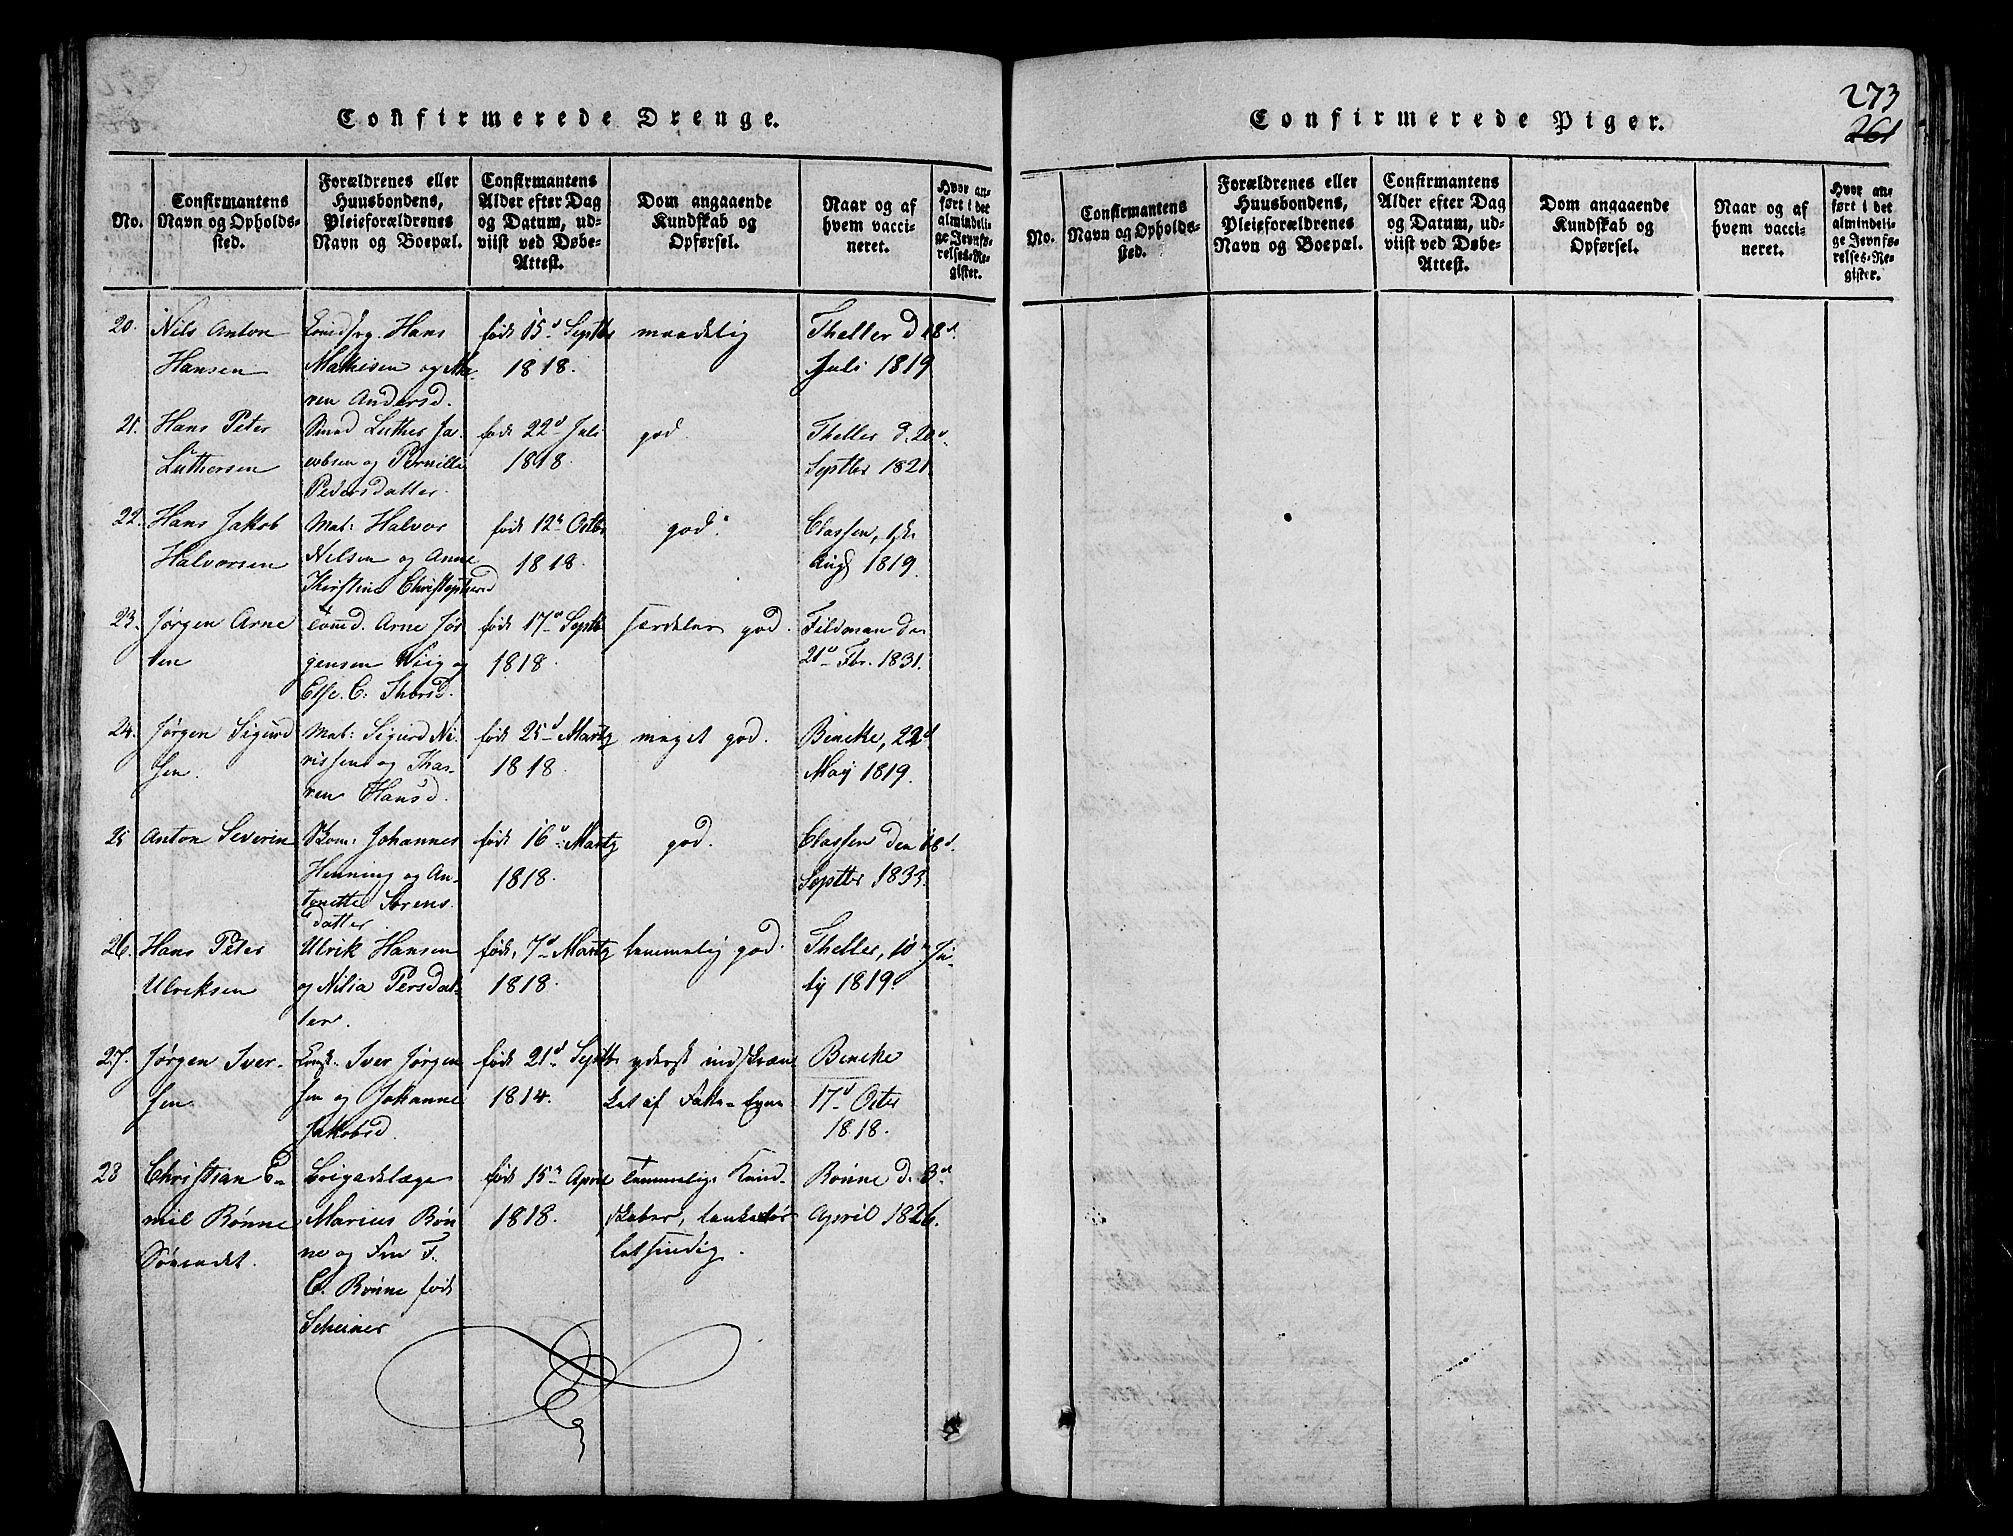 Confirmerede Drenge.
No.
Confirmantens
Navn og Opholds-
sted.
Forældrenes eller
Huusbondens,
Pleieforældrenes
Navn og Boepæl.
Confirmantens
Alder efter Dag
og Datum, ud-
viist ved Døbe-
Attest.
Dom angaaende
Kundskab og
Opførsel.
Naar og af
hvem vacci-
neret.
Hvor an-
ført i det
almindeli-
ge Jevnfø-
relses-Re-
gister.
20. Nils Anton
Hansen
Hans
Mathisen og Ma-
ren Andersd.
født 15d Septbr
1818.
maadelig
Theller d 18d
Juli 1819
21. Hans Peter
Luthersen
Luther Ja-
cobsen og Pernille
Pedersdatter.
født 22d Juli
1818.
god.
Theller d. 20d
Septbr 1821.
22. Hans Jakob
Halvorsen
Mat: Halvor
Nilsen og Anne
Kirstine Christophersd
født 12te Octbr
1818.
god.
Classen,
Aug 1819.
23. Jørgen Arne
sen
Arne Jør
gensen Wiig og
Else. C: Thorsd.
født 17d Septbr
1818.
særdeles god.
Feldman den
21d Fbr. 1831.
24. Jørgen Sigurd
sen.
Mat: Sigurd Ni-
rissen og Kar-
ren Hansd.
født 25d Martz
1818.
meget god.
Bincke, 22d
May 1819.
25 Anton Severin
Skom: Johannes
Henning og An-
tonette Sørens
datter
født 16d Martz
1818.
god.
Classen den 18d
Septbr 1833.
26. Hans Peter
Ulriksen
Ulrik Hansen
og Nilia Persdat-
ter.
født, 7d Martz
1818.
temmelig god.
Theller, 10 Ju-
ly 1819.
27. Jørgen Iver-
sen
Iver Jørgen
sen og Johanne
Jakobsd.
født 21d Septbr
1814.
yderst indskræn
ket af Fatte-Evne
Bincke
17d Octbr
1818.
28 Christian E-
mil Rønne
Brigadelæge
Marius Røn
ne og Fru F.
C. Rønne født
Scheiner
født 15te April
1818.
Temmelige Kund
skaber,
letsindig.
Rønne d. 3d
April 1826.
273
261
Confirmerede Piger.
No.
Confirmantens
Navn og Opholds-
sted.
Forældrenes eller
Huusbondens,
Pleieforældrenes
Navn og Boepæl.
Confirmantens
Alder efter Dag
og Datum, ud-
viist ved Døbe-
Attest.
Dom angaaende
Kundskab og
Opførsel.
Naar og af
hvem vacci-
neret.
Hvor an-
ført i det
almindeli-
ge Jevnfø-
relses-Re-
gister.